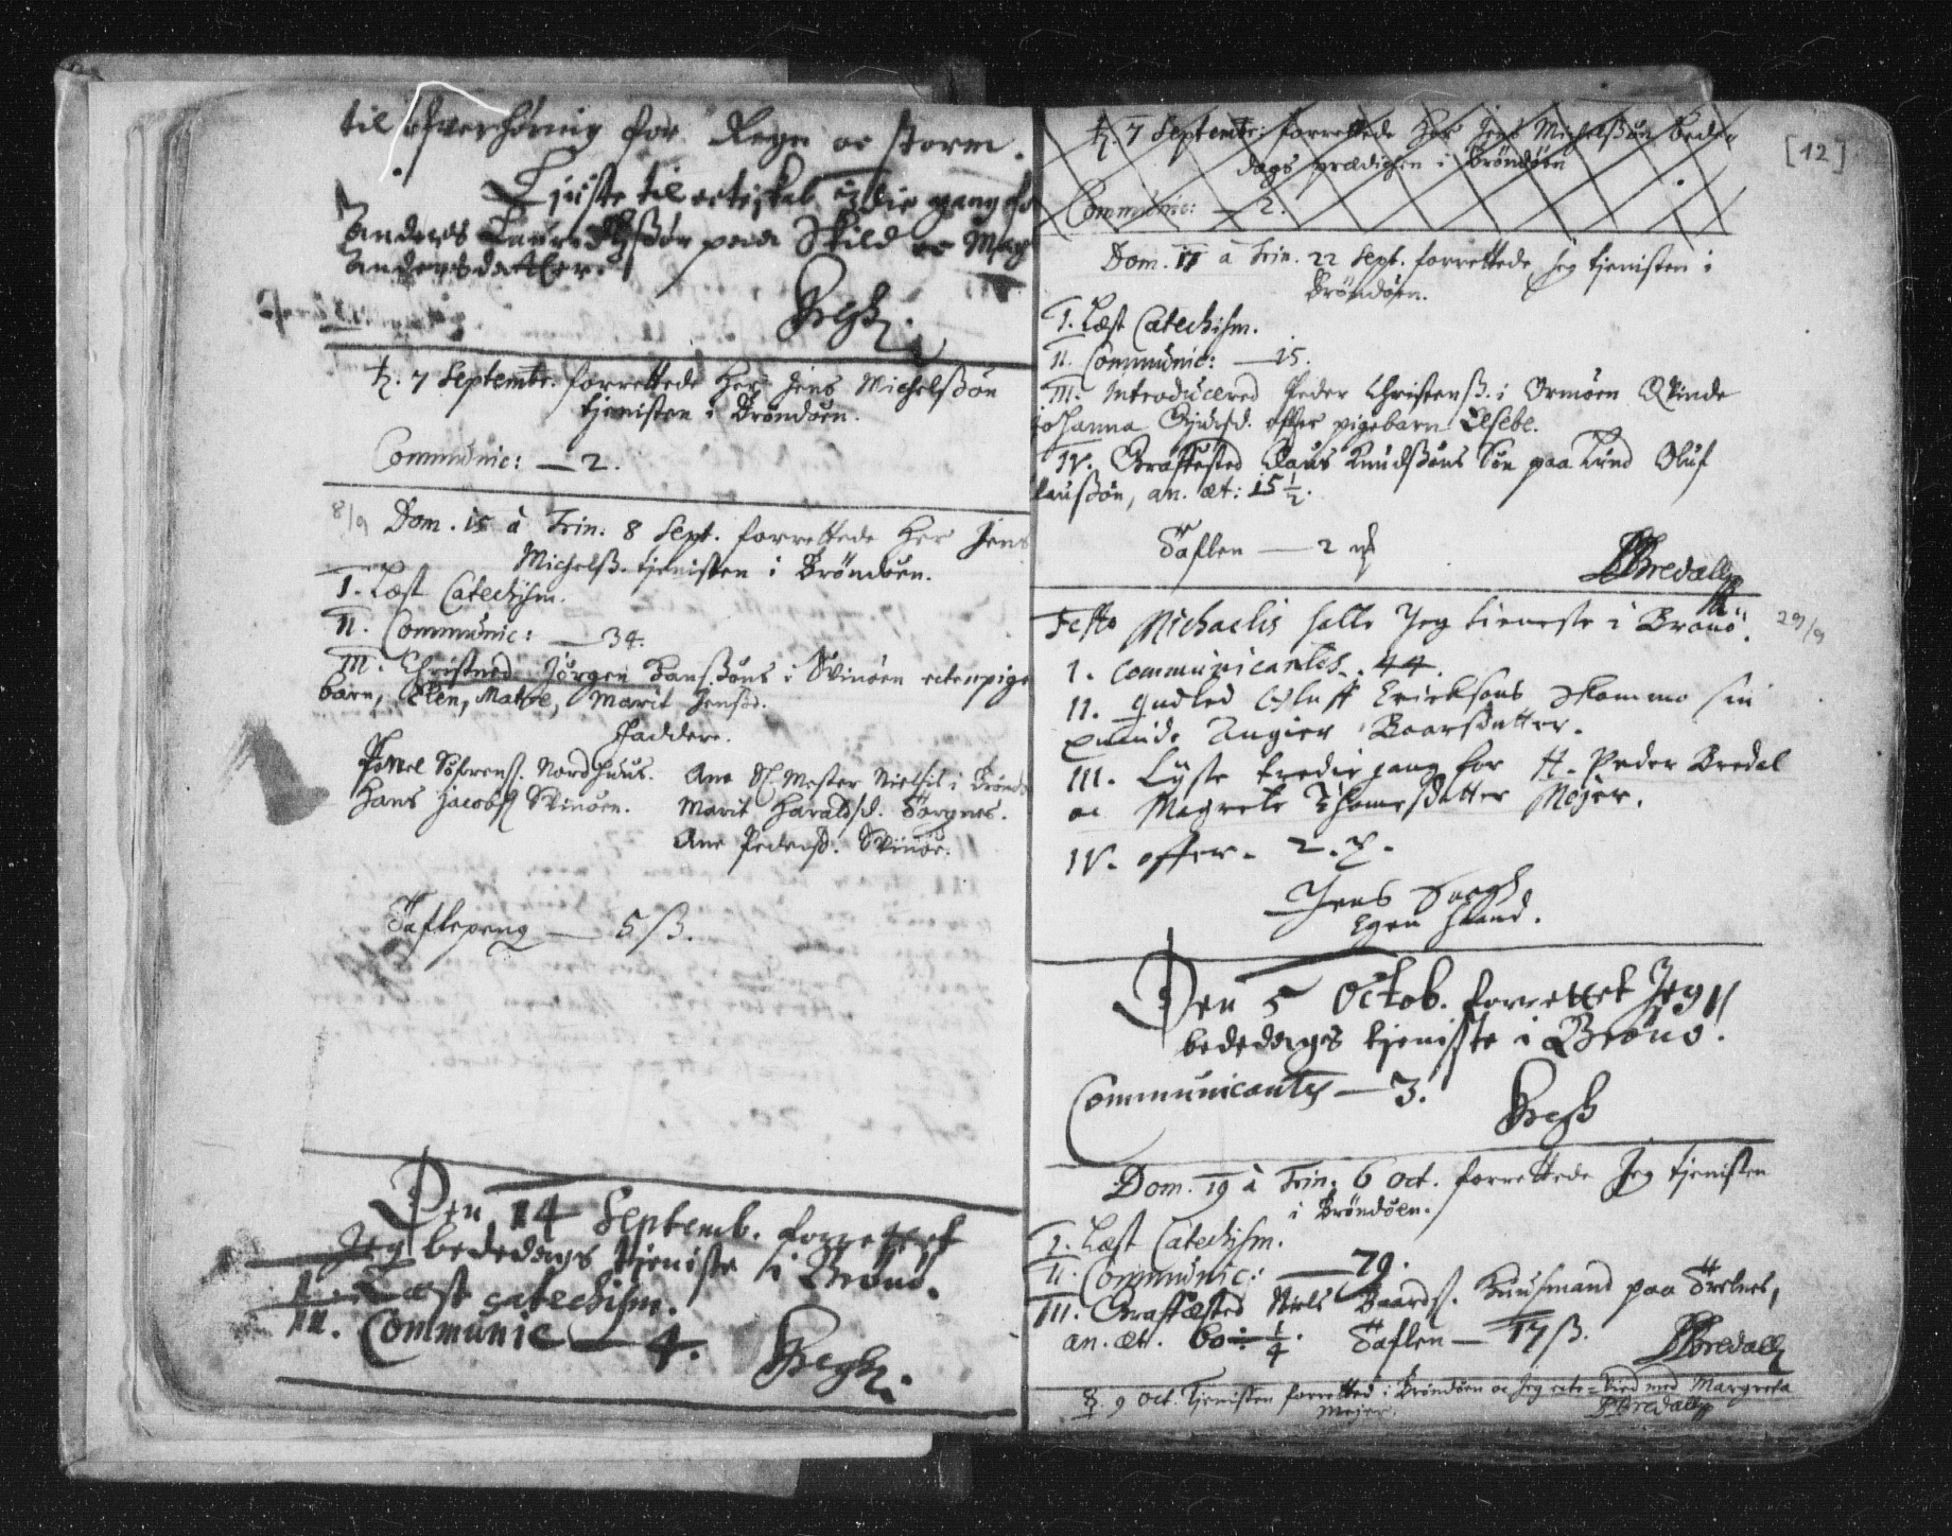 til ofverhöring for Regn oc storm.
Liuste til ecteskab 3die gang for
Anders Lauridsßön paa Skild oc Mag
Andersdatter.
ħ. 7 Septembr. forrettede Her Jens Michelsßön
tjenisten i Bröndöen.
Communic: — 2.
8/9 Dom. 15 à Trin: 8 Sept. forrettede Her Jens
Michelsß. tjenisten i Bröndöen.
I. Læst Catechism.
II. Communic: — 34.
III. Christned Jörgen Hansßöns i Svinöen ecte pige
barn, Elen, Mattre, Marit Jensd.
Faddere.
Povel Söfrensß. Nordhuus.
Hans Jacobsß Svinöen.
Ane Sl. Mester Nielsis i Bröndö
Marit Haraldsd. Torgnes.
Ane Pedersd. Svinöe.
Taflepeng — 5 ß.
Den 14 Septemb. forrettet
Jeg bededags tjeniste i Brönö.
I. Læst catechism.
II. Communic — 4.
[12]
ħ. 7 Septembr: forrettede Her Jens Michelsßön bede-
dags prædichen i Bröndöen
Communic: — 2.
Dom. 17 à Trin. 22 Sept. forrettede jeg tjenisten i
Bröndöen.
I. Læst Catechism.
II. Communic: — 15.
III. Introducered Peder Christensß. i Ormöen Qvinde
Johanna efter pigebarn Elsebe.
IV. Graffæsted Claus Knudsßöns Sön paa Lund Oluf
Clausßön, an. æt: 15 1/2.
Taflen — 2
PBredall
Festo Michaelis holte Jeg tieneste i Brönö. 29/9
I. Communicantes. 44.
II. Indled Oluff Ericksöns Skommo sin
quinde Angier Baarsdatter.
III. Lyste tredie gang for H. Peder Bredal
oc Magrete Thomesdatter Mejer.
IV. offer. 2.
Jens
Egen Haand.
Den 5 Octob. forrettet Jeg
bededags tjeniste i Brönö.
Communicantes — 3.
Dom. 19 à Trin: 6 Oct. forrettede Jeg tjenisten
i Bröndöen.
I. Læst Catechism.
II. Communic: — 79.
III. Graffæsted Niels Baardsß. Huusmand paa Trelnes,
an. æt. 60 1/4. Taflen — 17 ß. PBredall
9 Oct. Tjenisten forretted i Bröndöen oc Jeg ecte-vied med Margreta
Mejer. PBredall